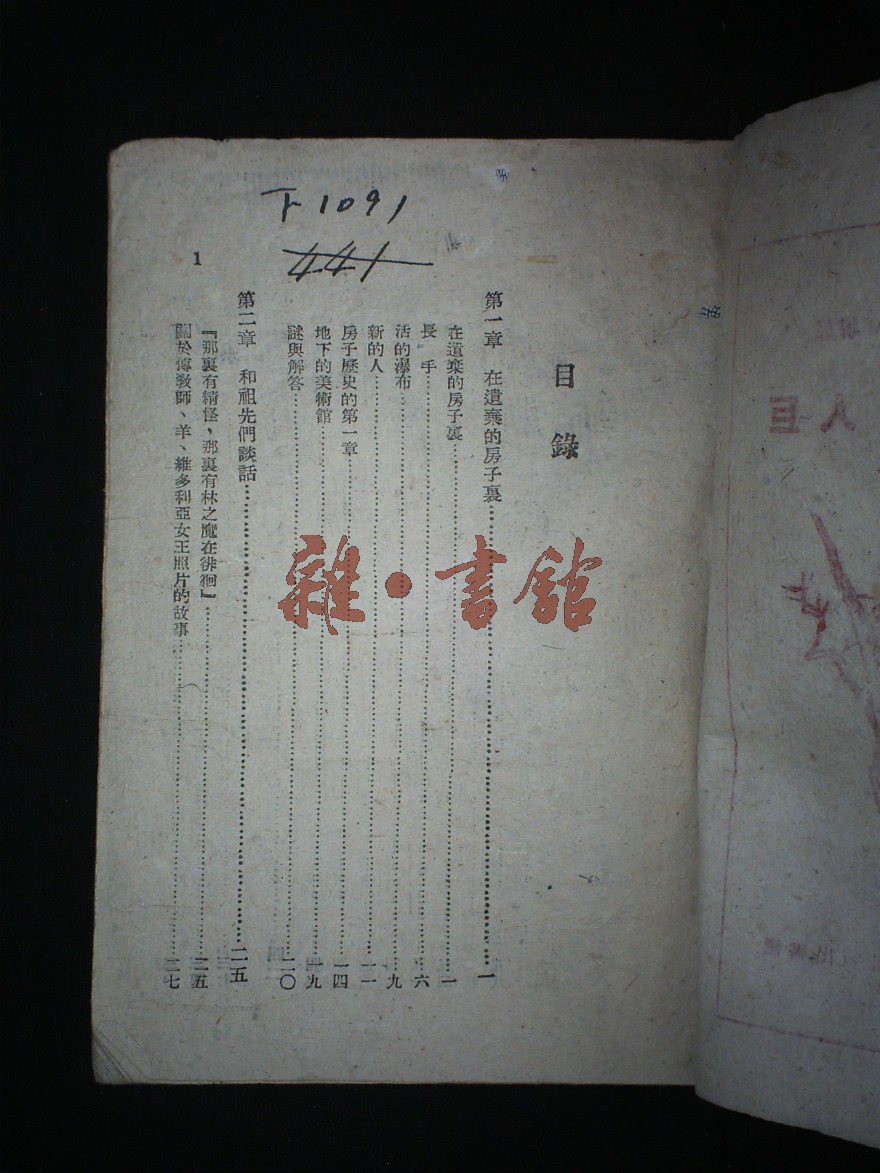 下1091
441
目錄
第一章 在遺棄的房子裏 一
在遺棄的房子裏 一
長手 六
活的瀑布 九
新的人 一一
房子歷史的第一章 一四
地下的美術館 一九
謎與解答 二〇
第二章 和祖先們談話 二五
『那裏有精怪，那裏有林之魔在徘徊』 二五
關於傳教師、羊、維多利亞女王照片的故事 二七
1
雜·書館
人巨